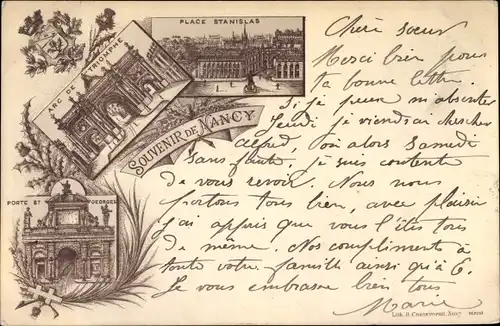 PLACE STANISLAS
ARC DE TRIOMPHE
SOUVENIR DE NANCY
PORTE ST GEORGES
Chère soeur
Merci bien pour
ta bonne lettre.
Si je peux m'absenter
Jeudi je viendrai chercher
Alfred, ou alors Samedi
sans faute, je suis contente
de vous revoir. Nous nous
portons tous bien, avec plaisir
j'ai appris que vous l'êtes tous
de même. Nos compliments à
toute votre famille ainsi qu'à
Je vous embrasse bien tous
Marie
Lith. Nancy